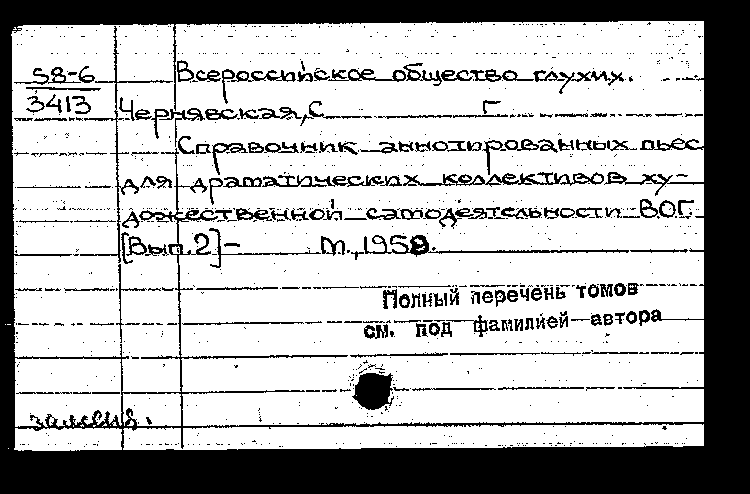 58-6
3413
Всероссийское общество глухих.
Чернявская, С Г
Справочник аннотированных пьес
для драматических коллективов ху-
дожественной самодеятельности ВОГ.
[Вып. 2] - М., 1958.
Полный перечень томов
см. под фамилией автора